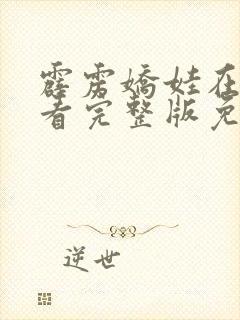 霹雳娇娃在
看完整版免
逆世